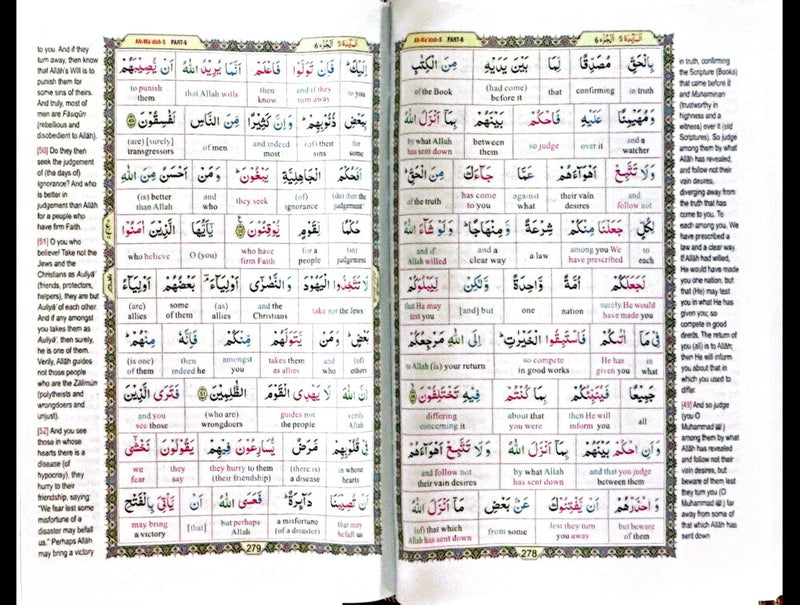 Al-Ma'idah 5 PART-6
المائدة ٥ الجزء ٦
بِالْحَقِّ مُصَدِّقًا لِّمَا بَيْنَ يَدَيْهِ مِنَ الْكِتٰبِ
in truth confirming that (had come) before it of the Book
وَ مُهَيْمِنًا عَلَيْهِ فَاحْكُمْ بَيْنَهُمْ بِمَآ اَنْزَلَ اللّٰهُ
and a watcher over it so judge between them by what Allah has sent down
وَلَا تَتَّبِعْ اَهْوَآءَهُمْ عَمَّا جَآءَكَ مِنَ الْحَقِّ ؕ
and follow not their vain desires against what has come to you of the truth
لِكُلٍّ جَعَلْنَا مِنْكُمْ شِرْعَةً وَّمِنْهَاجًا ؕ وَلَوْ شَآءَ اللّٰهُ
to each We have prescribed among you a law and a clear way and if Allah willed
لَجَعَلَكُمْ اُمَّةً وَّاحِدَةً وَّلٰكِنْ لِّيَبْلُوَكُمْ
surely He would have made you nation one [and] but that He may test you
فِيْ مَآ اٰتٰىكُمْ فَاسْتَبِقُوا الْخَيْرٰتِ ؕ اِلَى اللّٰهِ مَرْجِعُكُمْ
in what He has given you so compete in good works to Allah (is) your return
جَمِيْعًا فَيُنَبِّئُكُمْ بِمَا كُنْتُمْ فِيْهِ تَخْتَلِفُوْنَ ۝
all then He will inform you about that you were differing concerning it
وَ اَنِ احْكُمْ بَيْنَهُمْ بِمَآ اَنْزَلَ اللّٰهُ وَلَا تَتَّبِعْ اَهْوَآءَهُمْ
and that you judge between them by what Allah has sent down and follow not their vain desires
وَ احْذَرْهُمْ اَنْ يَّفْتِنُوْكَ عَنْۢ بَعْضِ مَآ اَنْزَلَ اللّٰهُ
but beware of them lest they turn you away from some (of) that which Allah has sent down
278
in truth, confirming
the Scripture (Books)
that came before it
and Muhaiminan
(trustworthy in
highness and a
witness) over it (old
Scriptures). So judge
among them by what
Allâh has revealed,
and follow not their
vain desires,
diverging away from
the truth that has
come to you. To
each among you, We
have prescribed a
law and a clear way.
If Allâh had willed,
He would have made
you one nation, but
that (He) may test
you in what He has
given you; so
compete in good
deeds. The return of
you (all) is to Allâh;
then He will inform
you about that in
which you used to
differ.
[49] And so judge
(you O
Muhammad ﷺ)
among them by what
Allâh has revealed
and follow not their
vain desires, but
beware of them lest
they turn you (O
Muhammad ﷺ) far
away from some of
that which Allâh has
sent down
Al-Ma'idah 5 PART-6
المائدة ٥ الجزء ٦
اِلَيْكَ ؕ فَاِنْ تَوَلَّوْا فَاعْلَمْ اَنَّمَا يُرِيْدُ اللّٰهُ اَنْ يُّصِيْبَهُمْ
to you and if they turn away then know that Allah wills to punish them
بِبَعْضِ ذُنُوْبِهِمْ ؕ وَاِنَّ كَثِيْرًا مِّنَ النَّاسِ لَفٰسِقُوْنَ ۝
for some (of) their sins and indeed most of men (are) [surely] transgressors
اَفَحُكْمَ الْجَاهِلِيَّةِ يَبْغُوْنَ ؕ وَمَنْ اَحْسَنُ مِنَ اللّٰهِ
(do) then the judgement (of) ignorance they seek and who (is) better than Allah
حُكْمًا لِّقَوْمٍ يُّوْقِنُوْنَ ۝ يٰٓاَيُّهَا الَّذِيْنَ اٰمَنُوْا
(in) judgement for a people who have firm Faith O (you) who believe
لَا تَتَّخِذُوا الْيَهُوْدَ وَالنَّصٰرٰٓى اَوْلِيَآءَ ؔ بَعْضُهُمْ اَوْلِيَآءُ
take not the Jews and the Christians (as) allies some of them (are) allies
بَعْضٍ ؕ وَمَنْ يَّتَوَلَّهُمْ مِّنْكُمْ فَاِنَّهٗ مِنْهُمْ ؕ
(of) others and who takes them as allies amongst you then indeed he (is one) of them
اِنَّ اللّٰهَ لَا يَهْدِي الْقَوْمَ الظّٰلِمِيْنَ ۝ فَتَرَى الَّذِيْنَ
verily Allah guides not the people (who are) wrongdoers and you see those
فِيْ قُلُوْبِهِمْ مَّرَضٌ يُّسَارِعُوْنَ فِيْهِمْ يَقُوْلُوْنَ نَخْشٰٓى
in whose hearts (there is) a disease they hurry to them (their friendship) they say we fear
اَنْ تُصِيْبَنَا دَآئِرَةٌ ؕ فَعَسَى اللّٰهُ اَنْ يَّاْتِيَ بِالْفَتْحِ
that may befall us a misfortune (of a disaster) but perhaps Allah [that] may bring a victory
279
to you. And if they
turn away, then know
that Allâh's Will is to
punish them for
some sins of theirs.
And truly, most of
men are Fâsiqûn
(rebellious and
disobedient to Allâh).
[50] Do they then
seek the judgement
of (the days of)
Ignorance? And who
is better in
judgement than Allâh
for a people who
have firm Faith.
[51] O you who
believe! Take not the
Jews and the
Christians as Auliyâ'
(friends, protectors,
helpers), they are but
Auliyâ' of each other.
And if any amongst
you takes them as
Auliyâ', then surely,
he is one of them.
Verily, Allâh guides
not those people
who are the Zâlimûn
(polytheists and
wrongdoers and
unjust).
[52] And you see
those in whose
hearts there is a
disease (of
hypocrisy), they
hurry to their
friendship, saying:
"We fear lest some
misfortune of a
disaster may befall
us." Perhaps Allâh
may bring a victory